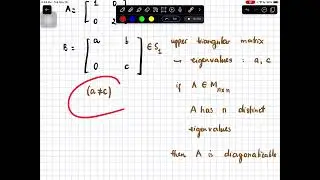 A =
1
0
B = [ a b
0 c ] ∈ S₁
(a ≠ c)
upper triangular matrix
↪ eigenvalues : a, c
if A ∈ Mₙₓₙ
A has n distinct
eigenvalues
then A is diagonalizable